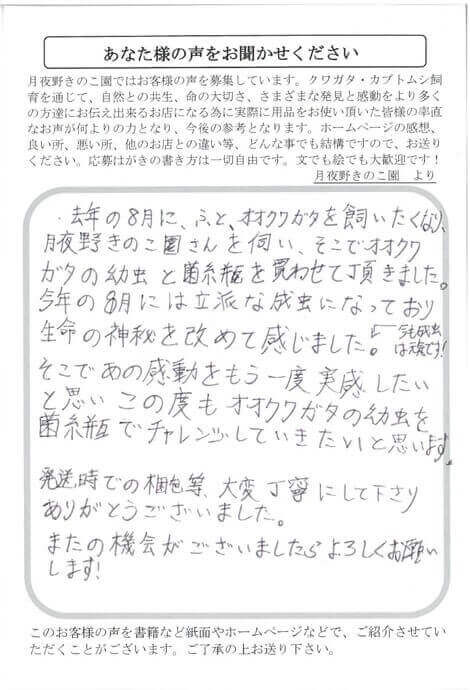 あなた様の声をお聞かせください
月夜野きのこ園ではお客様の声を募集しています。クワガタ・カブトムシ飼
育を通じて、自然との共生、命の大切さ、さまざまな発見と感動をより多く
の方達にお伝え出来るお店になる為に実際に用品をお使い頂いた皆様の率直
なお声が何よりの力となり、今後の参考となります。ホームページの感想、
良い所、悪い所、他のお店との違い等、どんな事でも結構ですので、お送り
ください。応募はがきの書き方は一切自由です。文でも絵でも大歓迎です！
月夜野きのこ園　より
・去年の8月に、ふと、オオクワガタを飼いたくなり、
月夜野きのこ園さんを伺い、そこでオオクワ
ガタの幼虫と菌糸瓶を買わせて頂きました。
今年の8月には立派な成虫になっており
生命の神秘を改めて感じました。←今も成虫
は元気です!
そこであの感動をもう一度実感したい
と思いこの度もオオクワガタの幼虫を
菌糸瓶でチャレンジしていきたいと思います。
発送時での梱包等、大変丁寧にして下さり
ありがとうございました。
またの機会がございましたらよろしくお願い
します!
このお客様の声を書籍など紙面やホームページなどで、ご紹介させてい
ただくことがございます。ご了承の上お送り下さい。